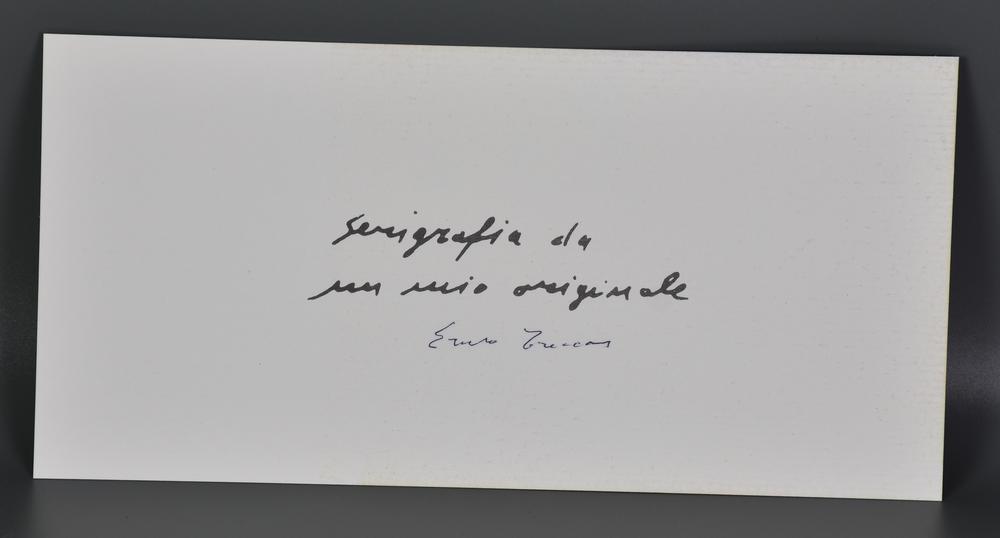 serigrafia da
un mio originale
Ernesto Treccani